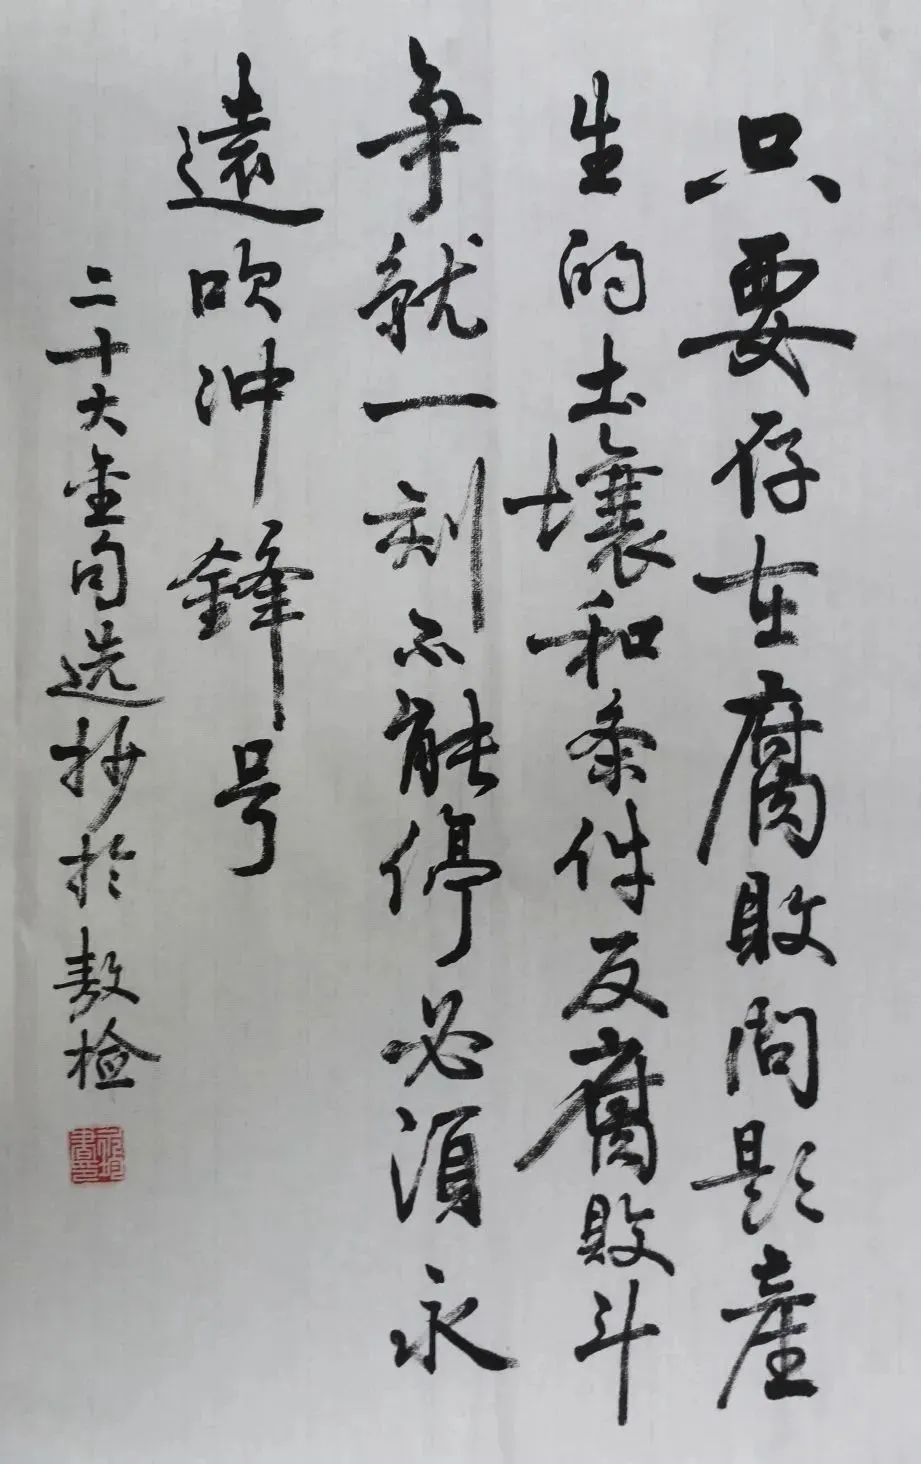 只要存在腐敗问题產
生的土壤和条件反腐敗斗
争就一刻不能停必须永
遠吹冲鋒号
二十大金句选抄於敖检